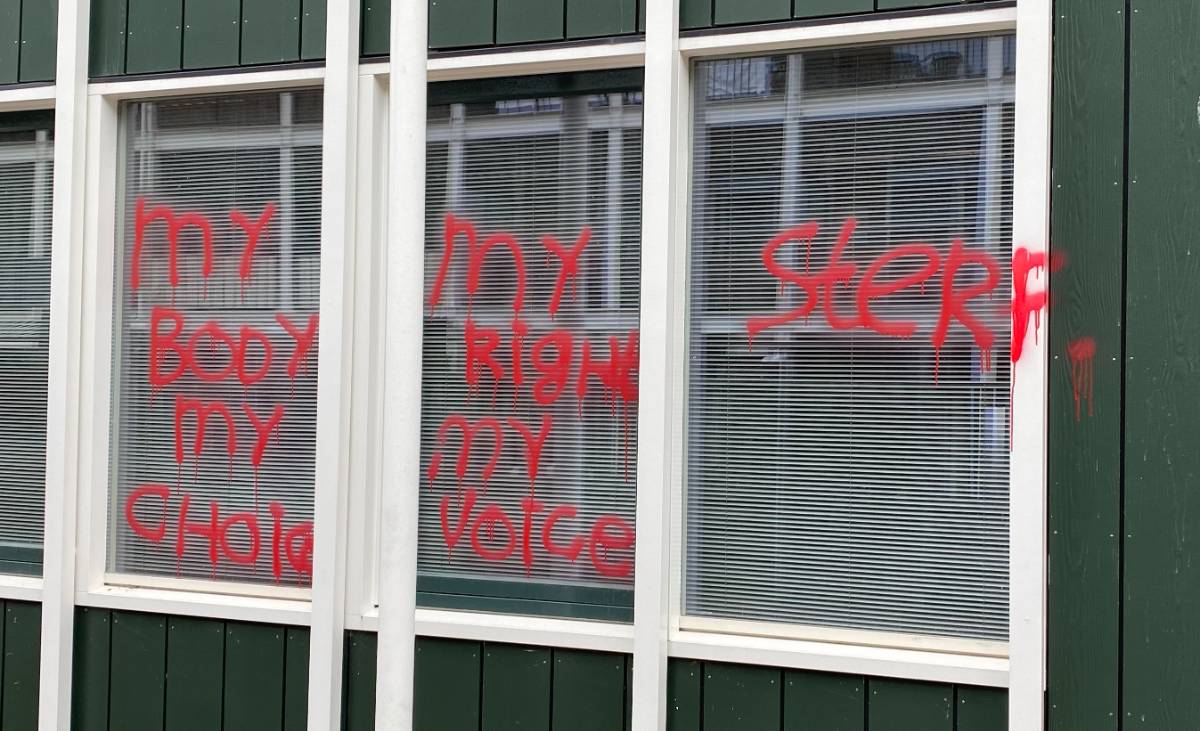 my
BODY
my
CHOIC
my
RigHt
my
voice
SterF